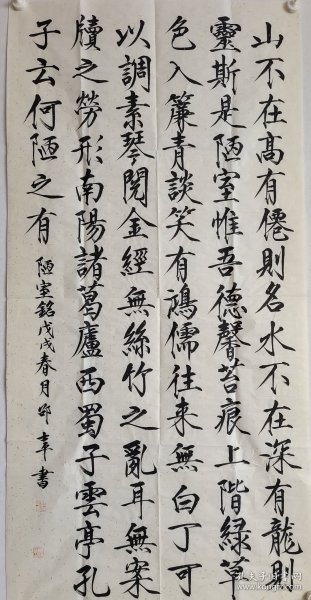 山不在高有僊則名水不在深有龍則
靈斯是陋室惟吾德馨苔痕上階綠草
色入簾青談笑有鴻儒往来無白丁可
以調素琴閱金經無絲竹之亂耳無案
牘之勞形南陽諸葛廬西蜀子雲亭孔
子云何陋之有
陋室銘戊戌春月書
孔夫子旧书网
www.kongfz.com